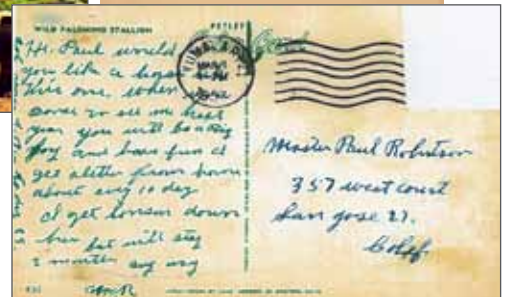 WILD PALOMINO STALLION
PETLEY
Card
YUMA, ARIZ.
MAR
PM
Hi. Paul would
you like a
this one. when
to see me next
year you will be a big
boy and have fun I
get a letter from home
about evry 10 dey
I get lonsum down
hear but will stay
2 months any way
Master Paul Robertson
357 west court
San jose 27.
Calif.